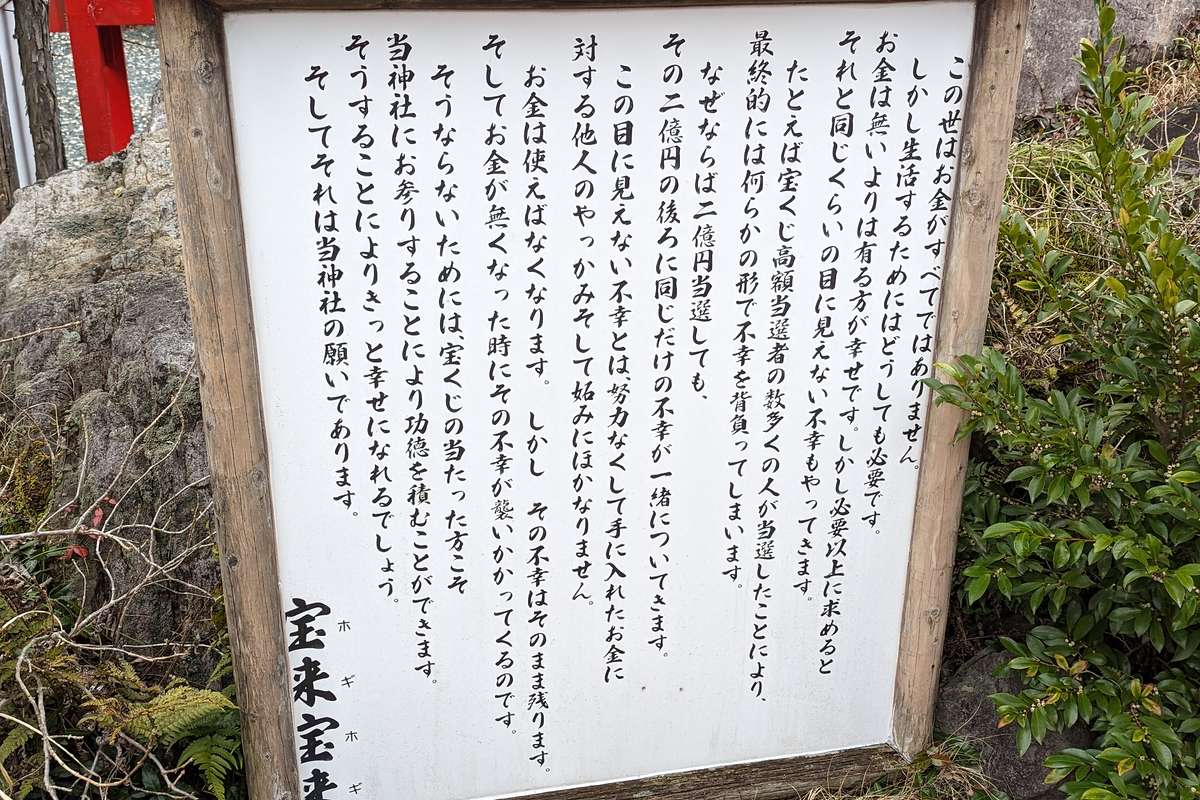 この世はお金がすべてではありません。
しかし生活するためにはどうしても必要です。
お金は無いよりは有る方が幸せです。しかし必要以上に求めると
それと同じくらいの目に見えない不幸もやってきます。
たとえば宝くじ高額当選者の数多くの人が当選したことにより、
最終的には何らかの形で不幸を背負ってしまいます。
なぜならば二億円当選しても、
その二億円の後ろに同じだけの不幸が一緒についてきます。
この目に見えない不幸とは、努力なくして手に入れたお金に
対する他人のやっかみそして妬みにほかなりません。
お金は使えばなくなります。しかし その不幸はそのまま残ります。
そしてお金が無くなった時にその不幸が襲いかかってくるのです。
そうならないためには、宝くじの当たった方こそ
当神社にお参りすることにより功徳を積むことができます。
そうすることによりきっと幸せになれるでしょう。
そしてそれは当神社の願いであります。
ホギホギ
宝来宝来